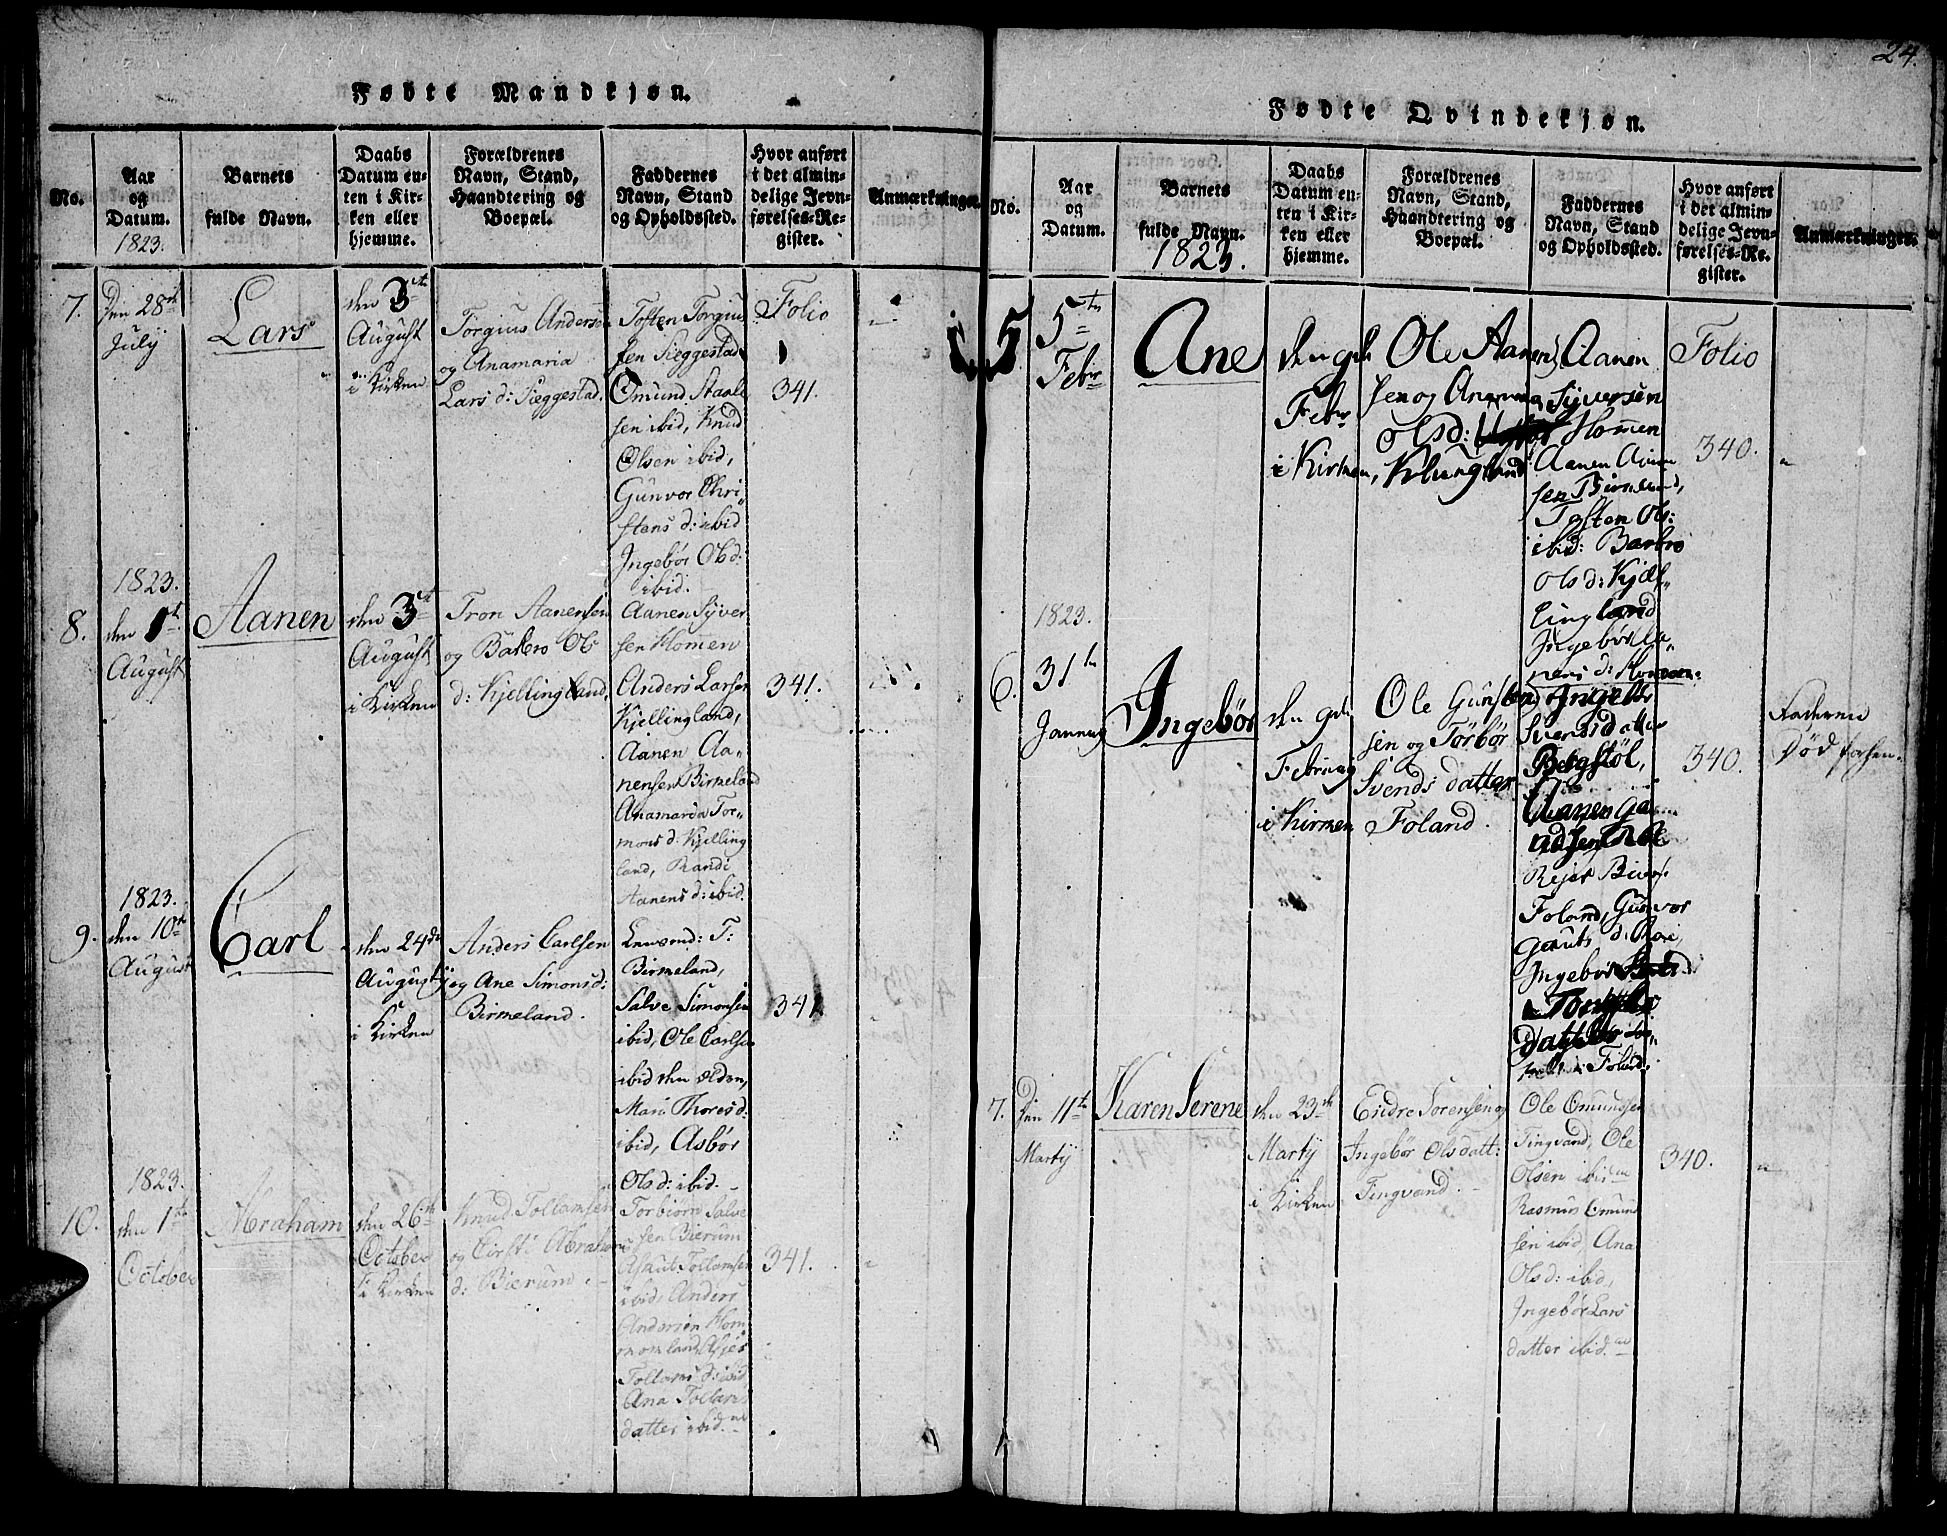 24.
Fødte Mandkjøn.
No.
Aar
og
Datum.
1823.
Barnets
fulde Navn.
Daabs
Datum en-
ten i Kir-
ken eller
hjemme.
Forældrenes
Navn, Stand,
Haandtering og
Boepæl.
Faddernes
Navn, Stand
og Opholdssted.
Hvor anført
i det almin-
delige Jevn-
førelses-Re-
gister.
Anmærkninger.
7.
Den 28de
July
Lars
den 3te
August
i Kirken
Torgius Andersen
og Anamaria
Lars d: Sieggestad.
Tosten Torgius
sen Sieggestad
Omund Staale
sen ibid, Knud
Olsen ibid,
Gunvor Chri-
stens d: ibid
Ingebør Ols d:
ibid.
Folio
341.
1823.
8.
den 1te
August
Aanen
den 3te
August
i Kirken
Tron Aanensen
og Ols
d: Kjellingland,
Aanen Syver
sen Homen
Anders Larsen
Kjellingland,
Aanen Aa-
nensen Birmeland
Anamaria Tor-
mons d: Kjelling
land, Randi
Aanens d: ibid.
341.
1823.
9.
den 10de
August
Carl
den 24de
August
i Kirken
Anders Carlsen
og Ane Simons d:
Birmeland.
T:
Birmeland,
Salve Simonsen
ibid, Ole Carlsen
ibid den ælder,
Mari Thores d:
ibid, Asbør
Ols d: ibid.
341
1823.
10.
den 1te
October
Abraham
den 26de
October
i Kirken
Knud Tollamsen
og Cirsti Abrahams
d: Bierum
Torbiørn Salve
sen Bierum
Tollamsen
ibid, Anders
Andersen Hom
momland,
Tollams d: ibid
Ana Tollams
datter ibid.
341.
Fødte Qvindekjøn.
No.
Aar
og
Datum.
Barnets
fulde Navn.
1823.
Daabs
Datum en-
ten i Kir-
ken eller
hjemme.
Forældrenes
Navn, Stand,
Haandtering og
Boepæl.
Faddernes
Navn, Stand
og Opholdssted.
Hvor anført
i det almin-
delige Jevn-
førelses-Re-
gister.
Anmærkninger.
5
5te
Febr
Ane
den 9de
Febr
i Kirken,
Ole Aanen
sen og
Ols d:
Klungland
Aanen
Syversen
Homen
Aanen
sen Birmeland,
Tosten Ols:
ibid: Barbro
Ols d: Kjæl-
lingland
Ingebør Aa-
nens d: Homen.
Folio
340.
1823.
6.
31te
January
Ingebør
den 9de
February
i Kirken
Ole Gunsten
sen og Torbør
Svends datter
Foland.
Svens datter
Bergstøl,
Aanen
Rejer
Foland, Gunvor
d:
Ingebør
datter
Foland.
340.
7.
Den 11te
Marty
Karen Serene
den 23de
Marty
i Kirken
Endre Sørensen og
Ingebør Ols datt:
Tingvand.
Ole Omundsen
Tingvand, Ole
Olsen ibid
Rasmus Omund
sen ibid, Ana
Ols d: ibid,
Ingebør Lars
datter ibid.
340.